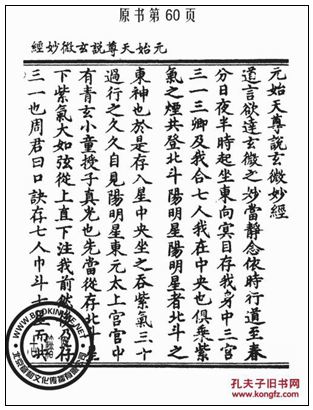 原书第60页
經妙微玄説尊天始元
元始天尊説玄微妙經
道言欲達玄微之妙當靜念依時行道至春
分日夜半時起坐東向冥目存我身中三宮
三一三卿及我合七人我在中央也俱乘紫
氣之煙共登北斗陽明星陽明星者北斗之
東神也於是存入星中央坐之吞紫氣三十
過行之久久自見陽明星東元太上宮宮中
有青玄小童授子真光也先當從存北斗星
下紫氣大如弦從上直下注我前然後存
三一也周君曰口訣存七人巾斗十
WWW.BOOKINLIFE.NET
孔夫子旧书网
kongfz.com